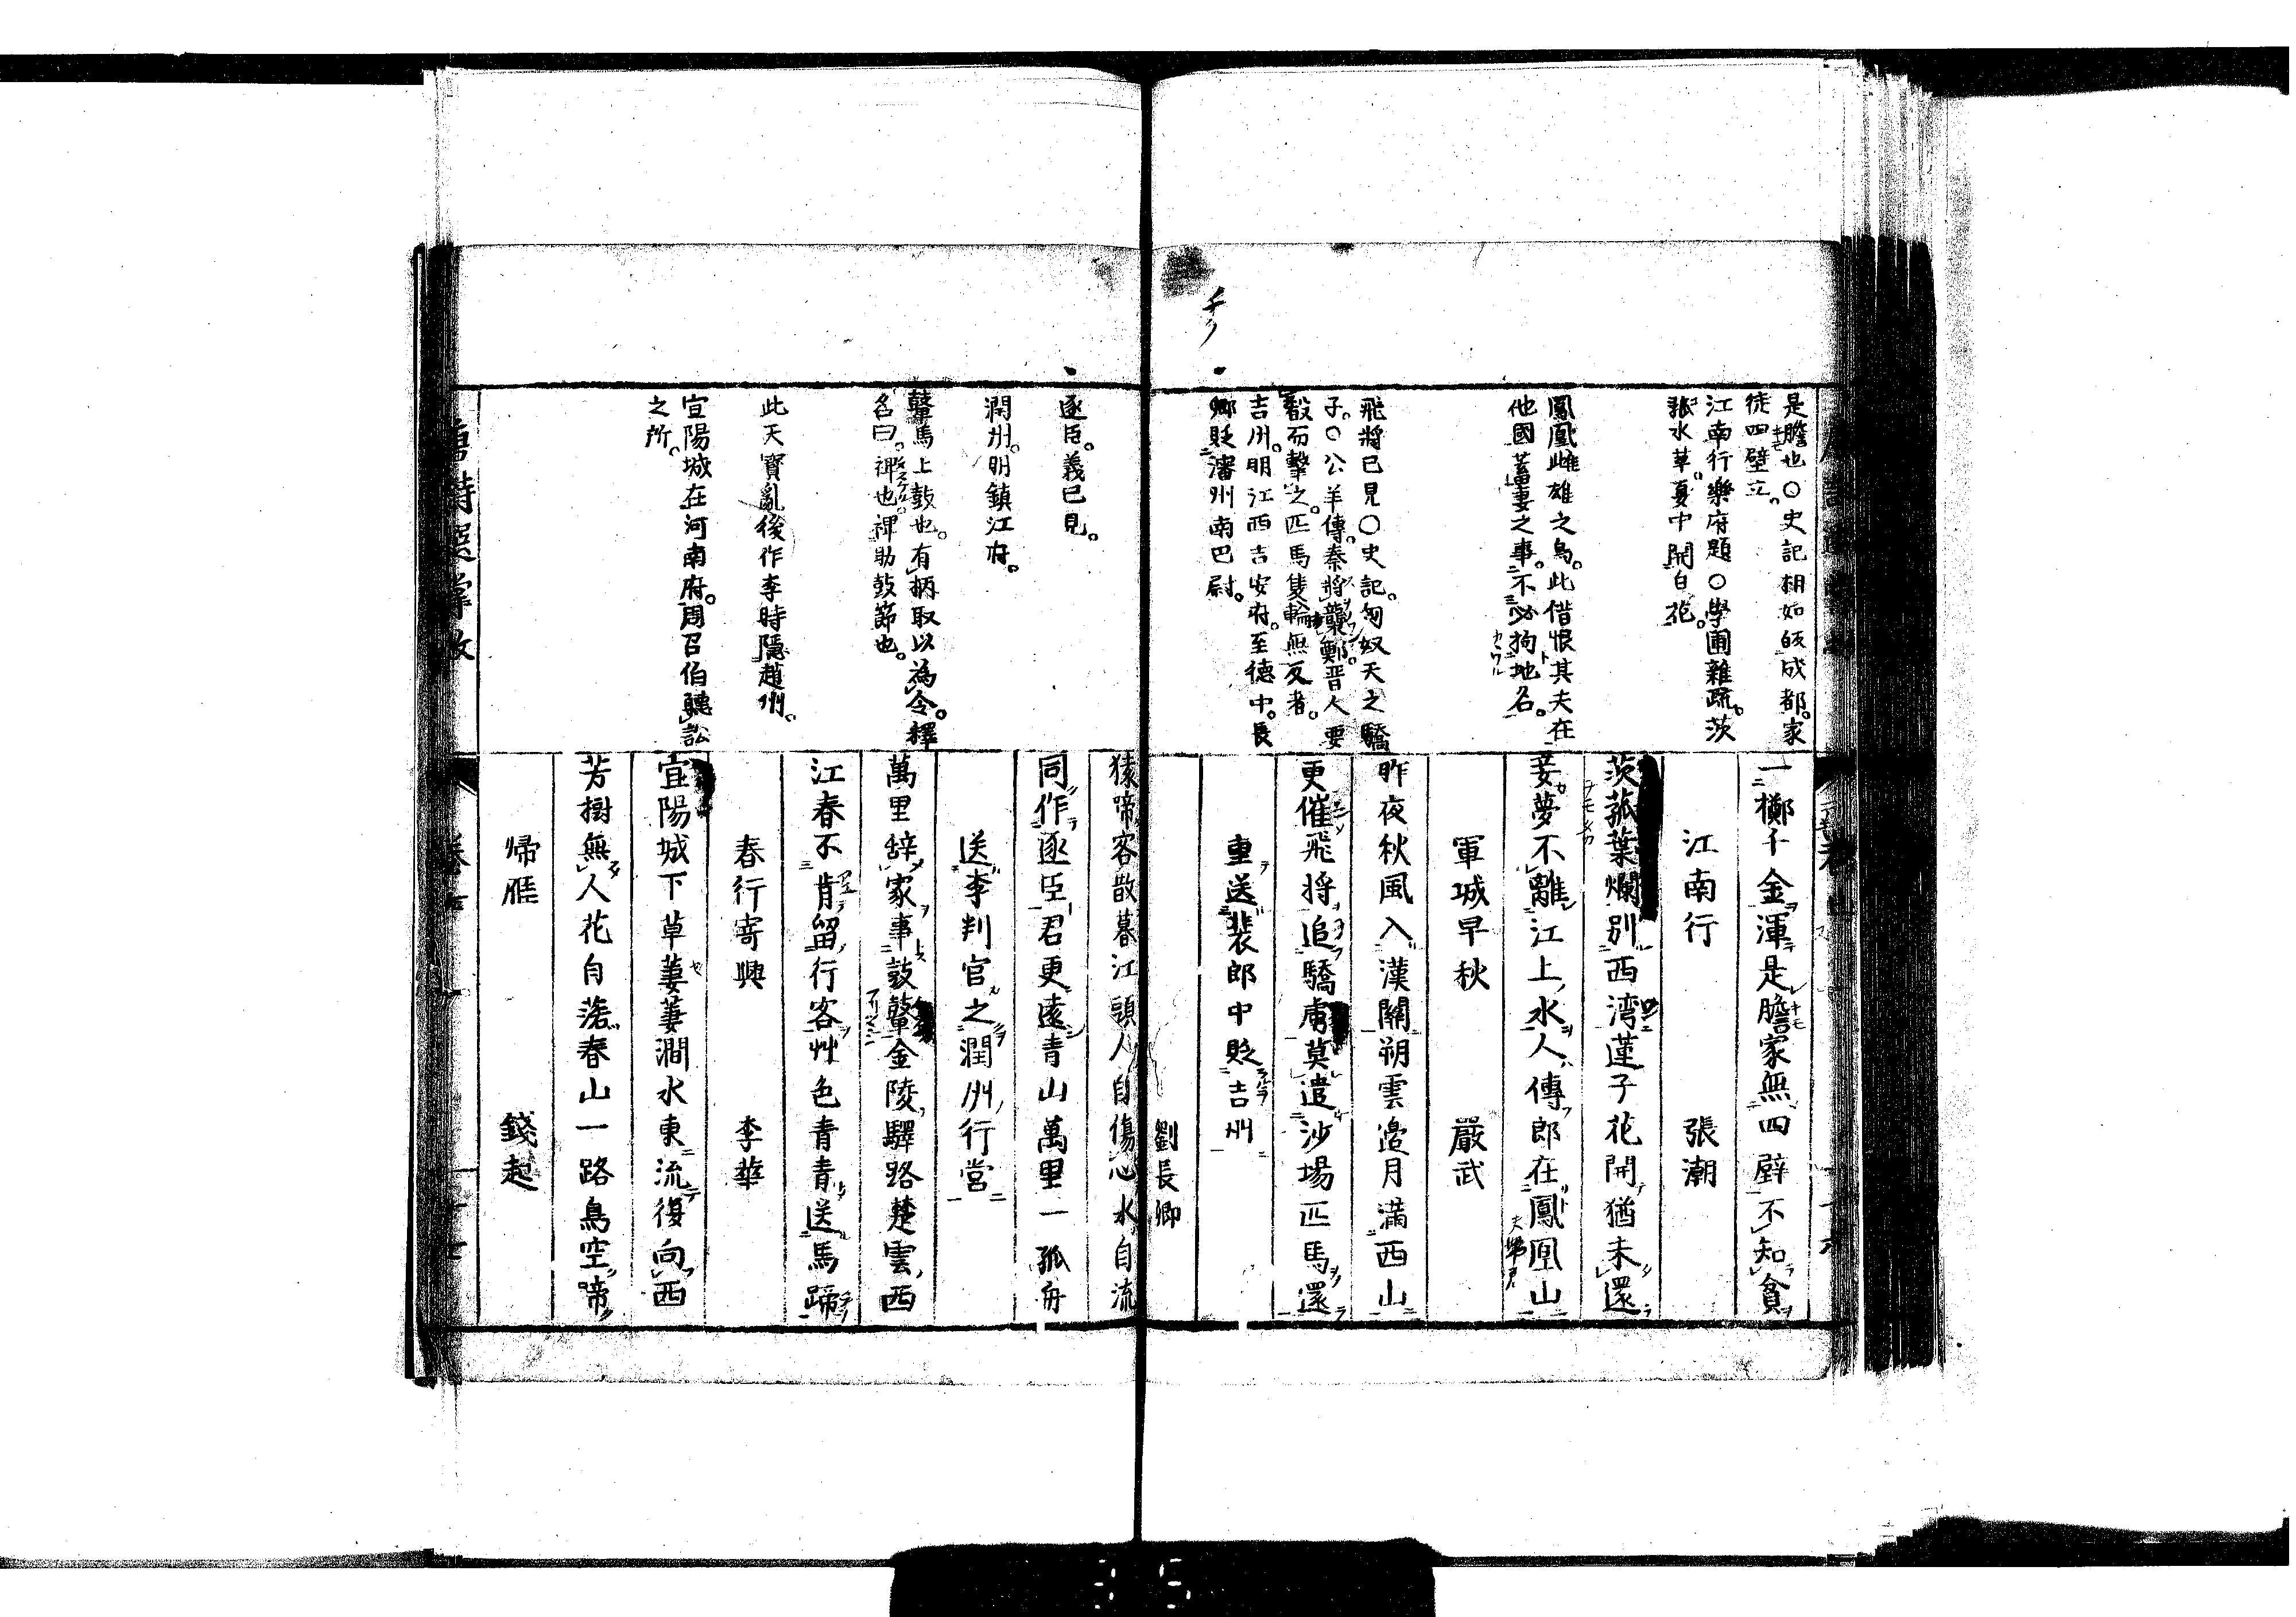 是膽也○史記相如皈成都家
徒四壁立
江南行樂府題○學圃雜疏茨
菰水草夏中開白花
鳳凰雌雄之鳥此借恨其夫在
他國蓄妻之事不必拘地名
飛將已見○史記匈奴天之驕
子○公羊傳秦將襲鄭晋人要
殽而擊之匹馬隻輪無反者
吉州明江西吉安府至德中長
卿貶潘州南巴尉
一擲千金渾是膽家無四壁不知貧
江南行　張潮
茨菰葉爛別西湾蓮子花開猶未還
妾夢不離江上水人傳郎在鳳凰山
軍城早秋　嚴武
昨夜秋風入漢關朔雲邊月滿西山
更催飛將追驕虜莫遣沙場匹馬還
重送裴郎中貶吉州
劉長卿
逐臣義已見
潤州明鎮江府
鼙馬上鼓也有柄取以為令釋
名曰裨也裨助鼓節也
此天寶亂後作李時隱趙州
宜陽城在河南府周召伯聽訟
之所
猿啼客散暮江頭人自傷心水自流
同作逐臣君更遠青山萬里一孤舟
送李判官之潤州行営
萬里辞家事鼓鼙金陵驛路楚雲西
江春不肯留行客艸色青青送馬蹄
春行寄興　李華
宜陽城下草萋萋澗水東流復向西
芳樹無人花自落春山一路鳥空啼
帰雁　錢起
唐詩選掌故